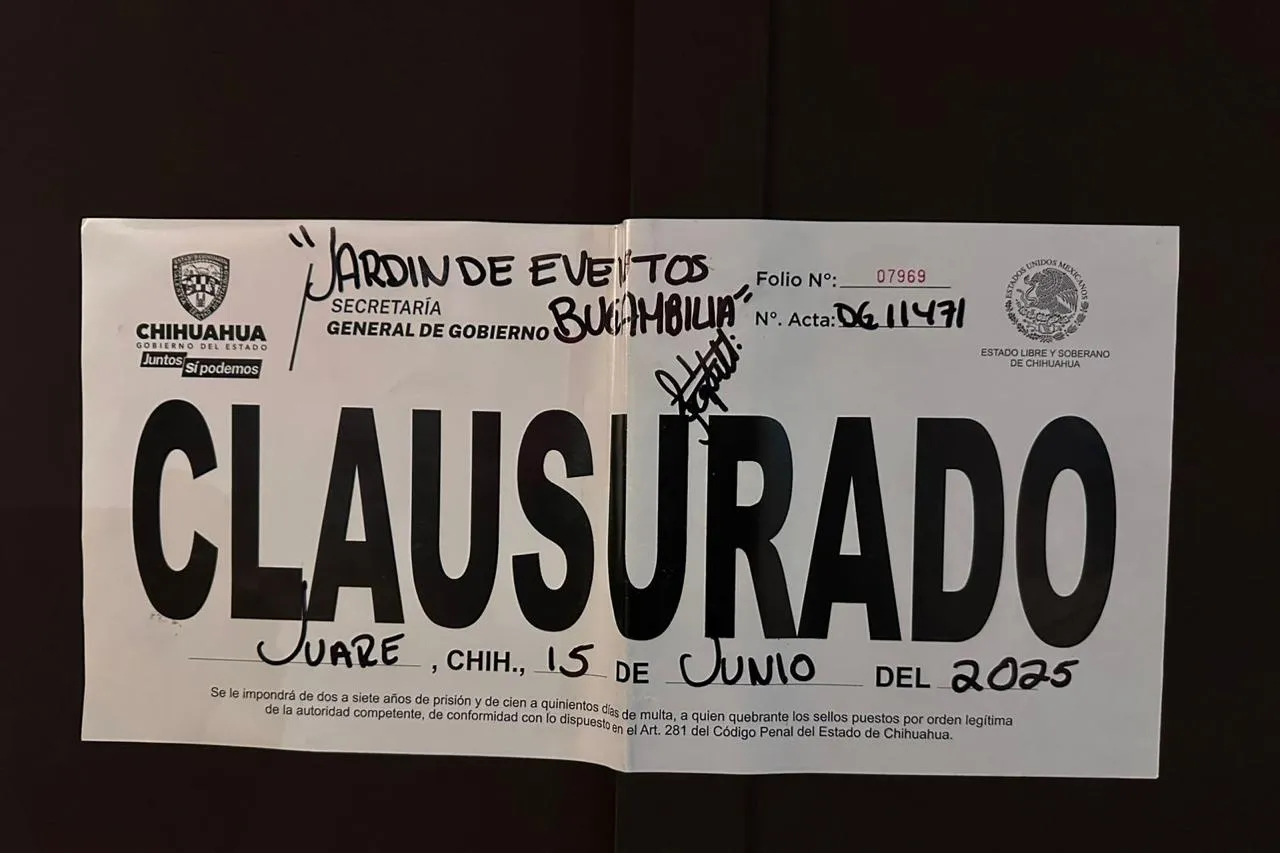 "JARDIN DE EVENTOS
BUGAMBILIA"
CHIHUAHUA
GOBIERNO DEL ESTADO
Juntos Sí podemos
SECRETARÍA
GENERAL DE GOBIERNO
Folio Nº: 07969
Nº. Acta: DG 11471
ESTADOS UNIDOS MEXICANOS
ESTADO LIBRE Y SOBERANO
DE CHIHUAHUA
CLAUSURADO
JUARE, CHIH., 15 DE JUNIO DEL 2025
Se le impondrá de dos a siete años de prisión y de cien a quinientos días de multa, a quien quebrante los sellos puestos por orden legítima
de la autoridad competente, de conformidad con lo dispuesto en el Art. 281 del Código Penal del Estado de Chihuahua.